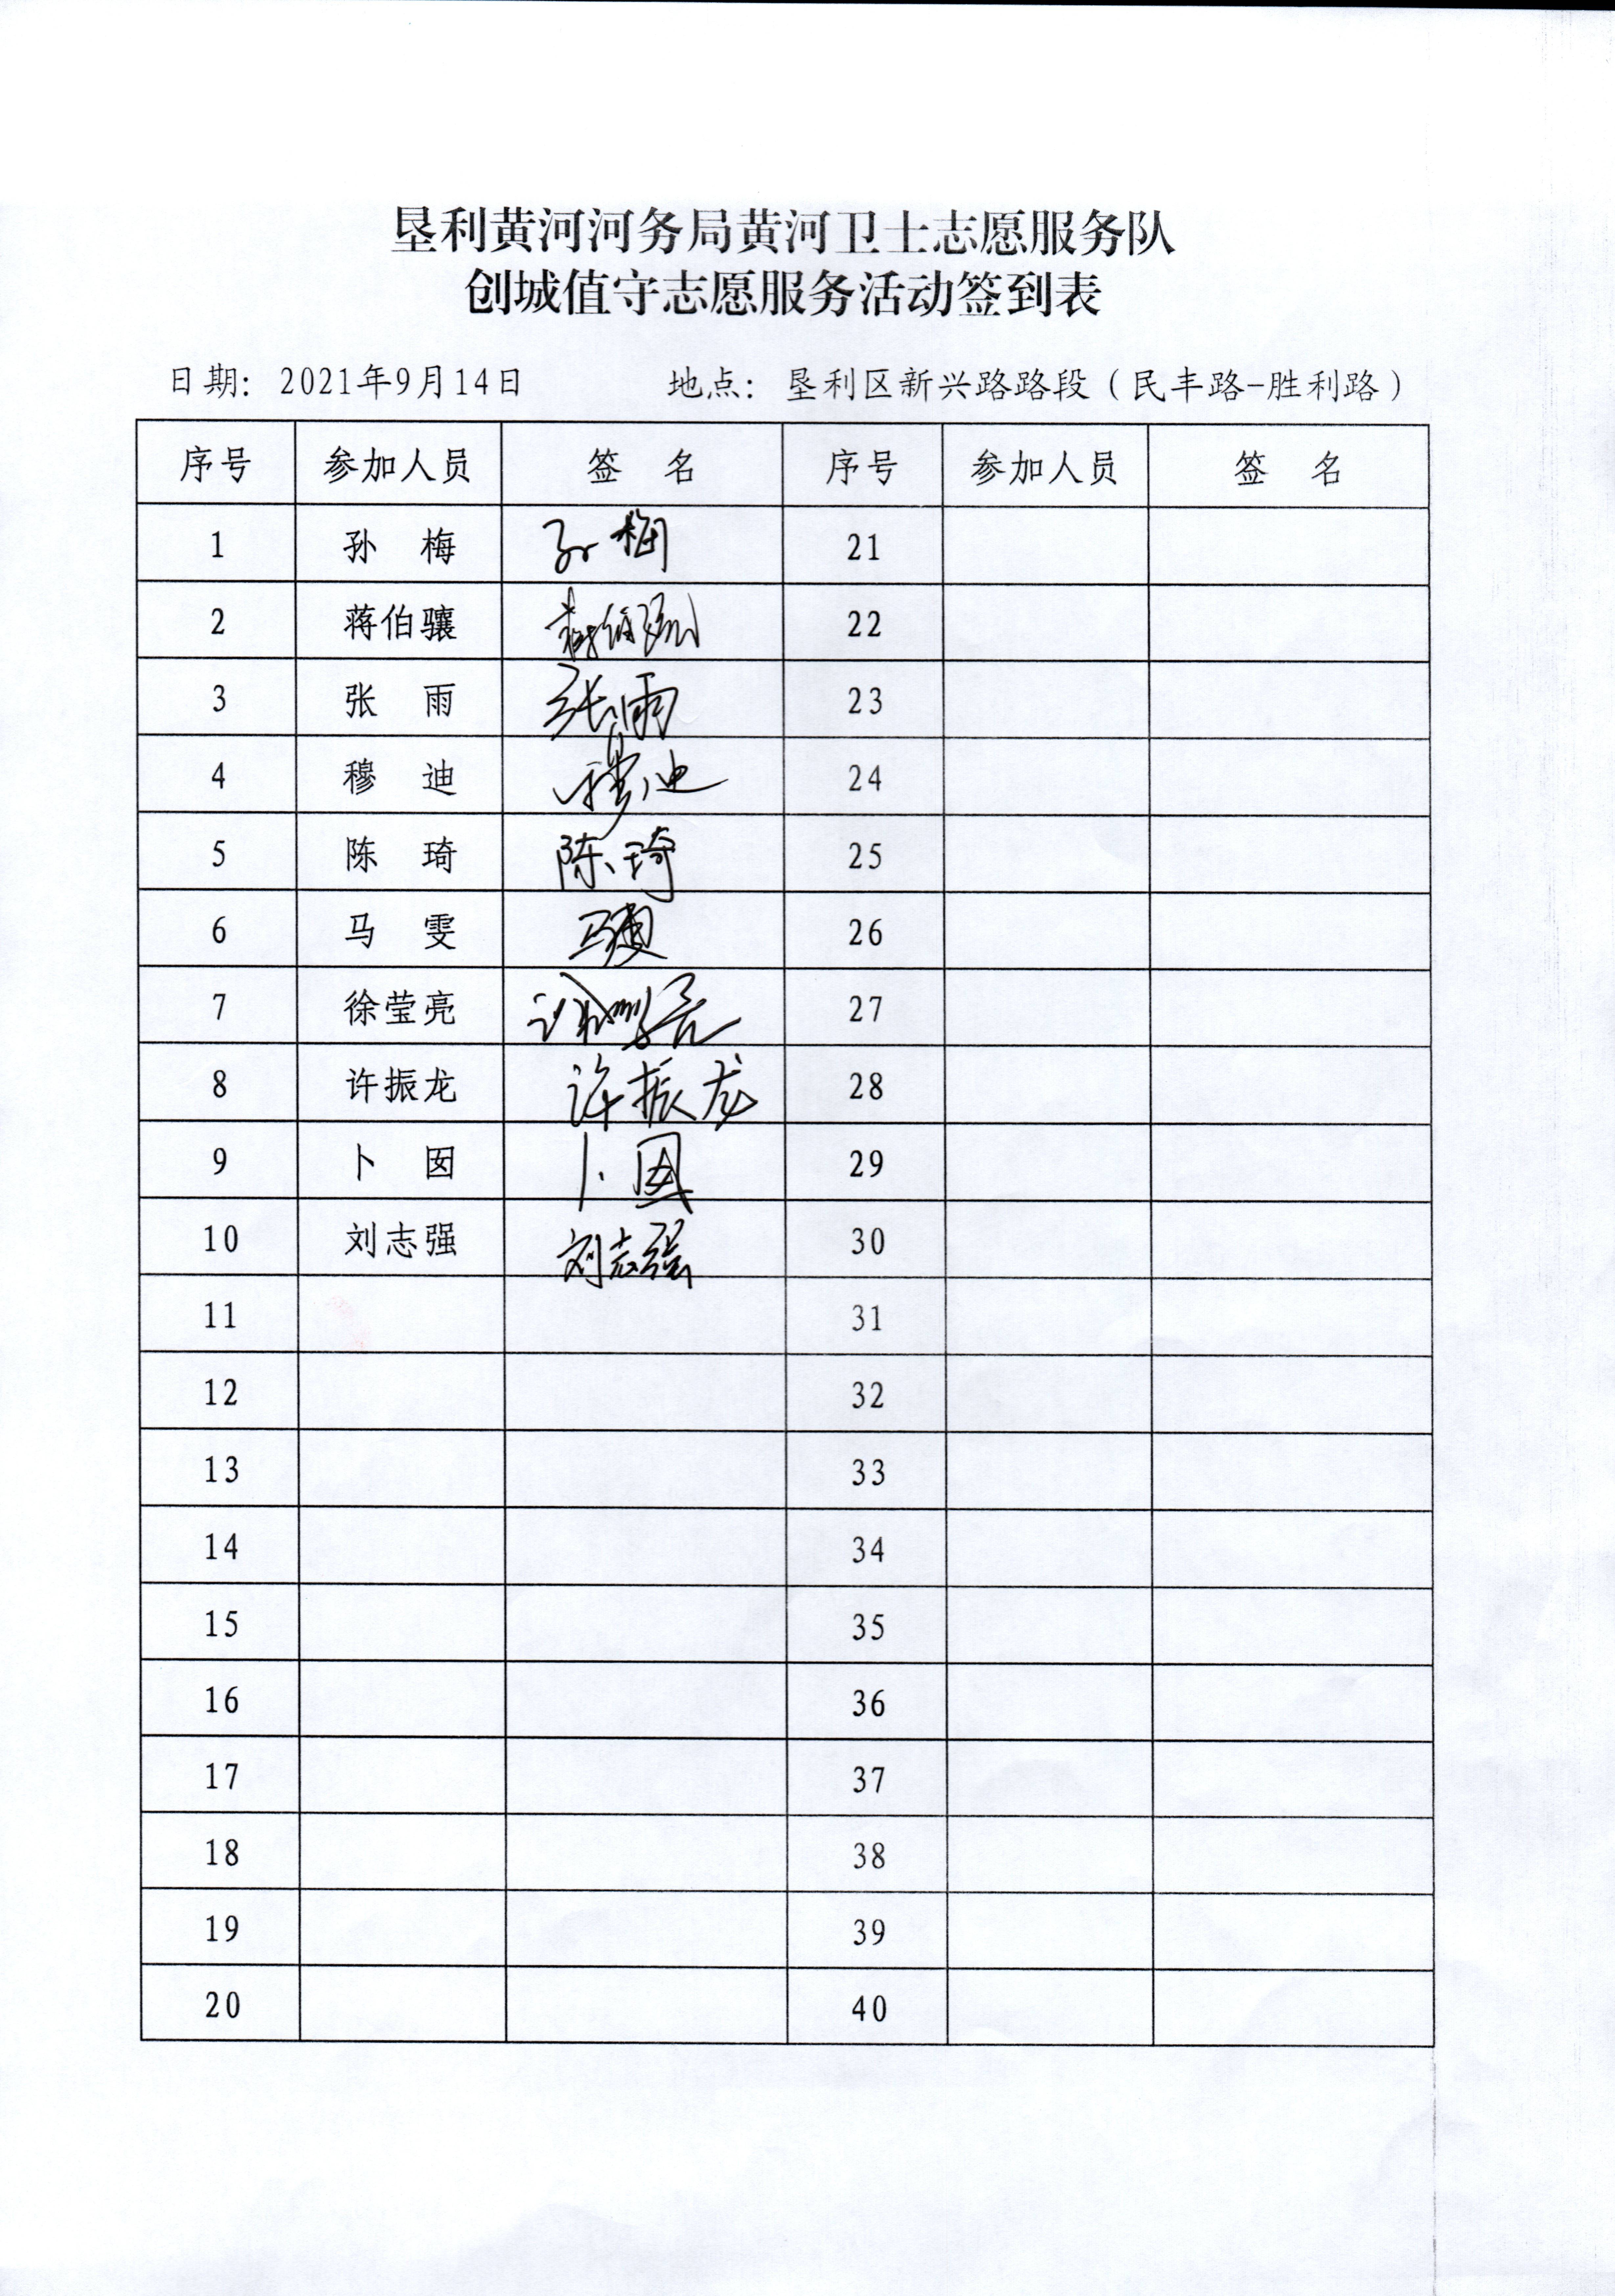 垦利黄河河务局黄河卫士志愿服务队
创城值守志愿服务活动签到表
日期: 2021年9月14日 地点: 垦利区新兴路路段（民丰路-胜利路）
序号 参加人员 签 名 序号 参加人员 签 名
1 孙 梅 孙梅 21
2 蒋伯骧 蒋伯骧 22
3 张 雨 张雨 23
4 穆 迪 穆迪 24
5 陈 琦 陈琦 25
6 马 雯 马雯 26
7 徐莹亮 27
8 许振龙 许振龙 28
9 卜 囡 卜囡 29
10 刘志强 刘志强 30
11 31
12 32
13 33
14 34
15 35
16 36
17 37
18 38
19 39
20 40